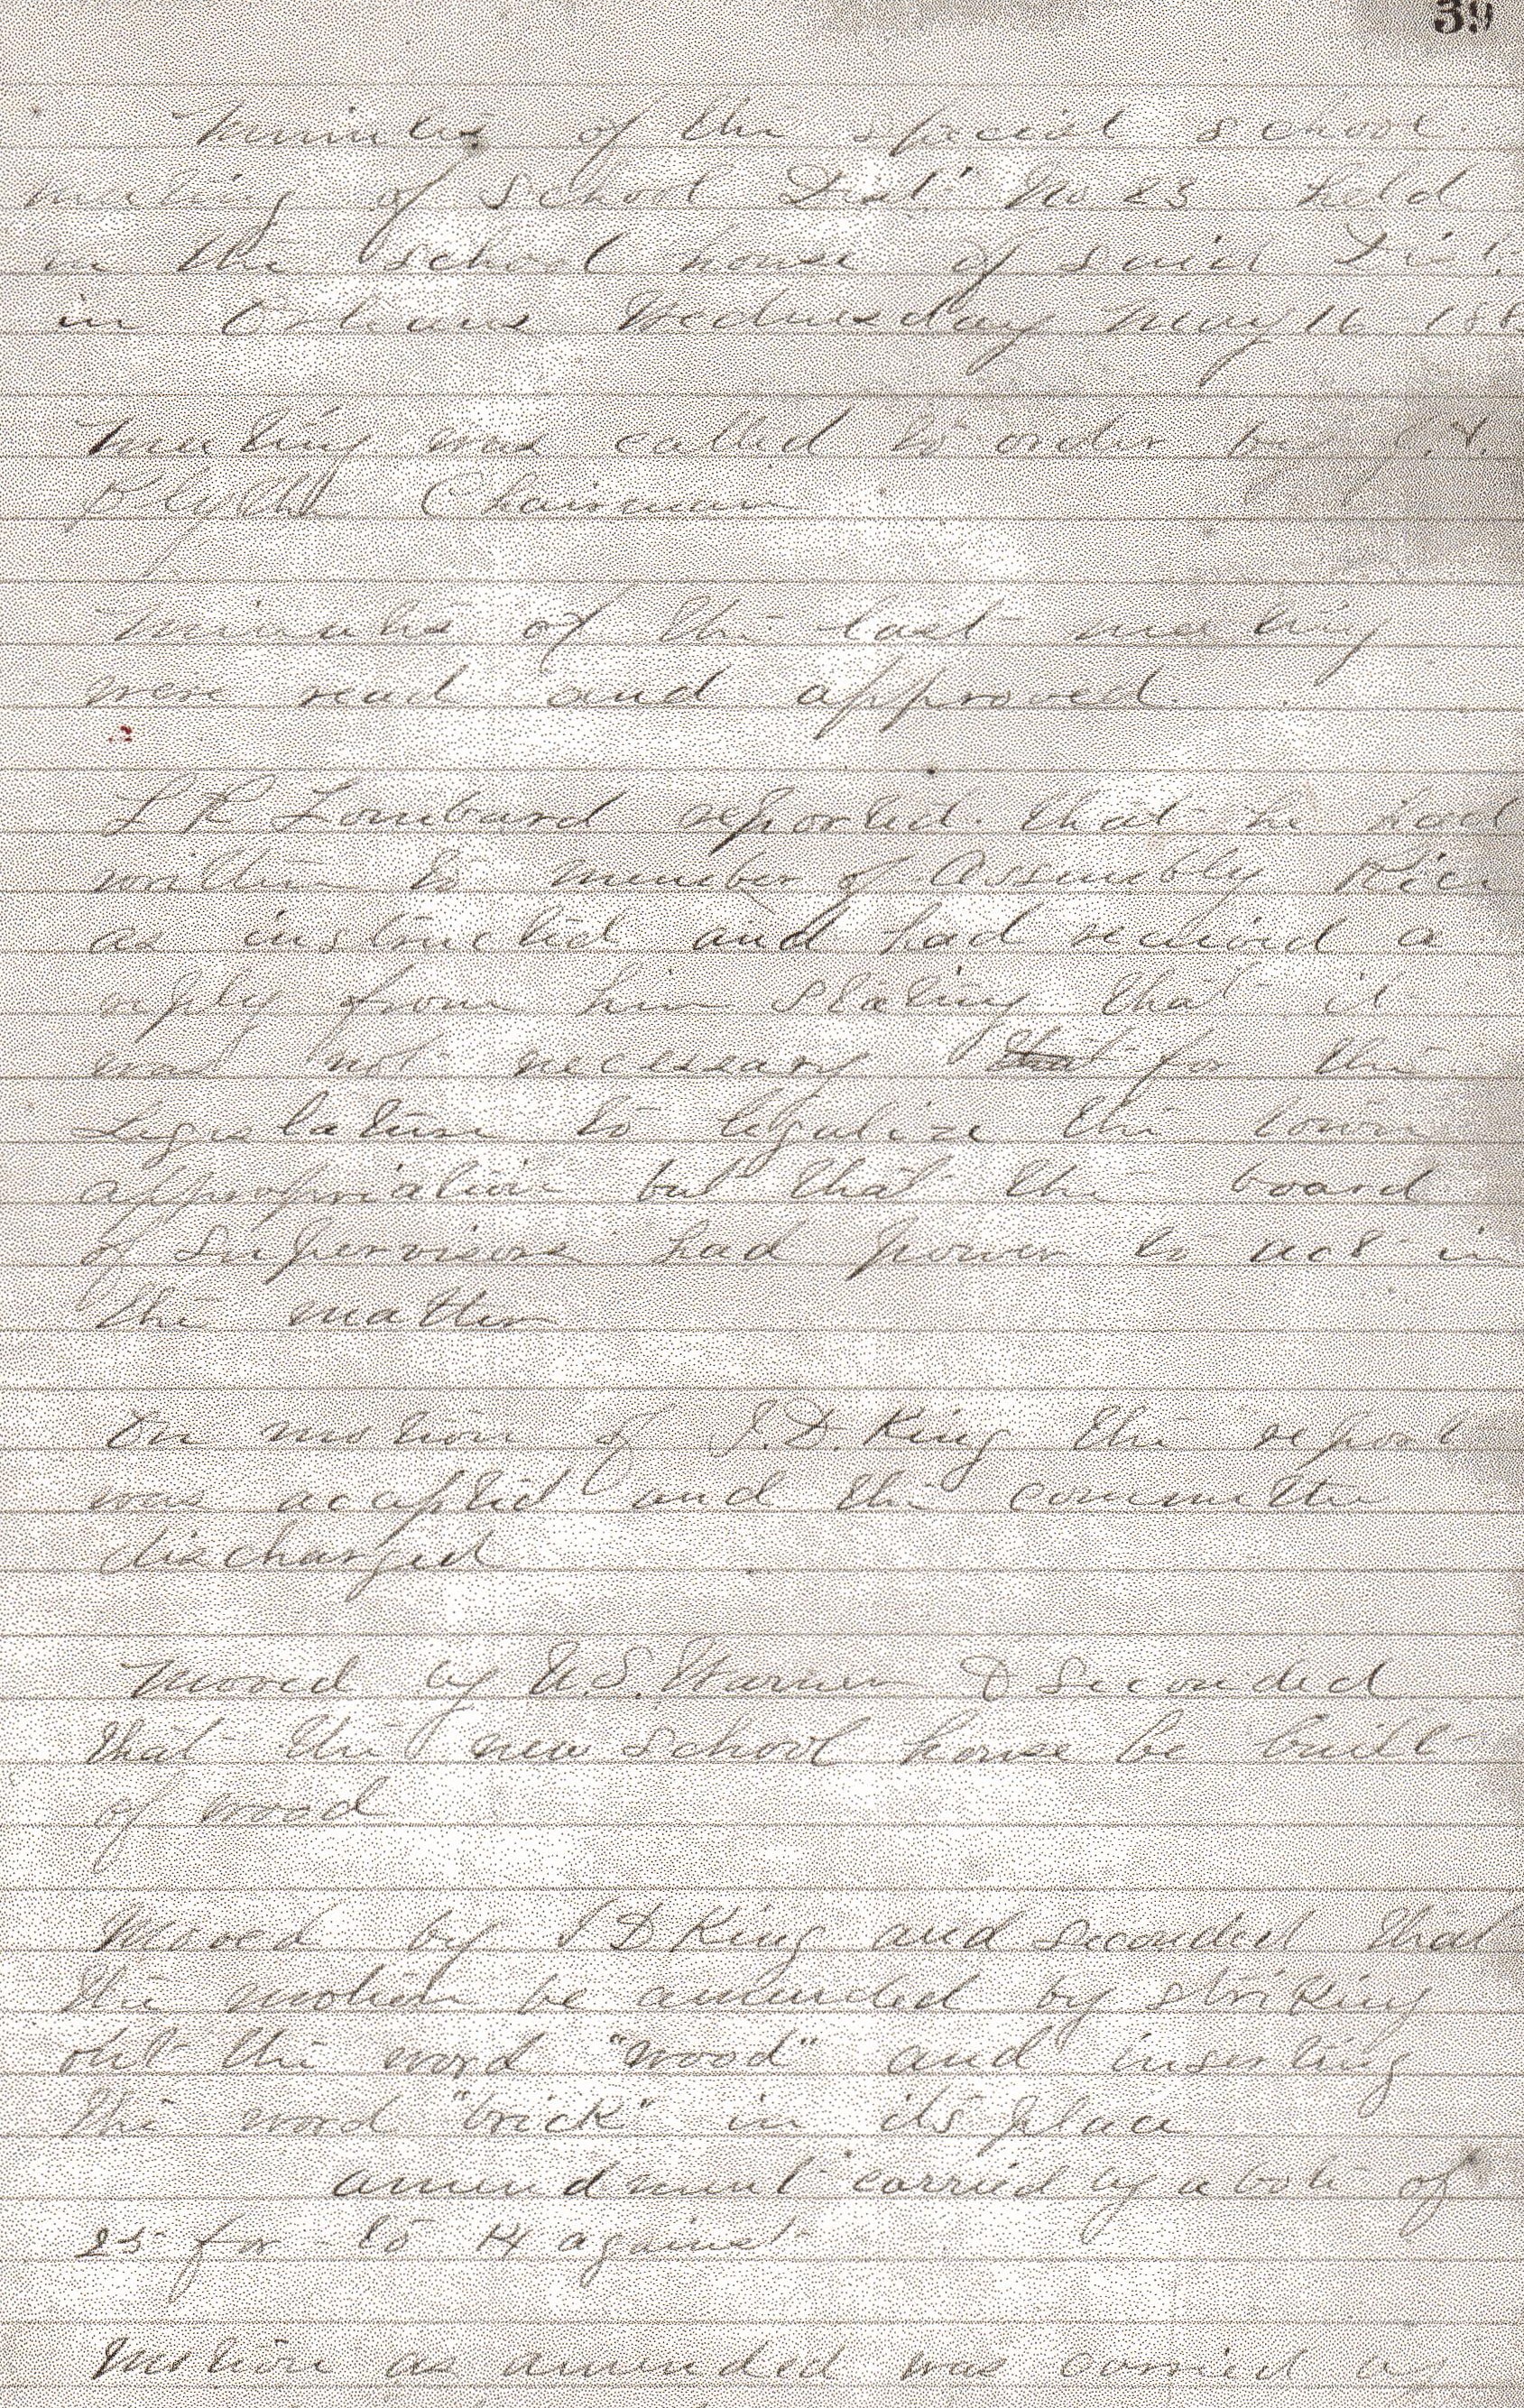 39
Minutes of the special school
meeting of School Dist. No 23 held
in the school house of said Dist.
in Orleans Wednesday May 16 188
Meeting was called to order by
Blythe Chairman
Minutes of the last meeting
were read and approved.
L R Lombard reported that he had
written to member of Assembly Rice
as instructed and had received a
reply from him stating that it
was not necessary that for the
Legislature to legalize the town
appropriation but that the board
of Supervisors had power to act in
the matter
On motion of J.D. King the report
was accepted and the committee
discharged
Moved by U.S. Warner & Seconded
that the new School house be built
of wood
Moved by J D King and seconded that
the motion be amended by striking
out the word "wood" and inserting
the word "brick" in its place
amendment carried by a vote of
25 for - to 14 against
Motion as amended was carried as